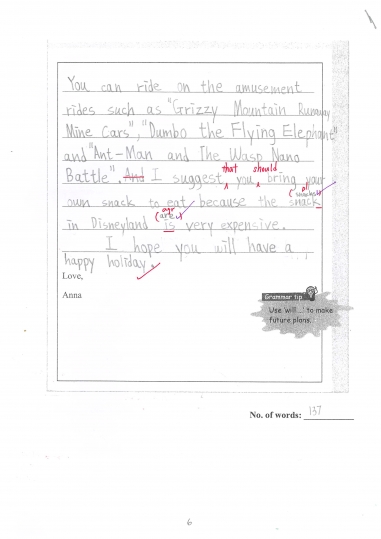 You can ride on the amusement
rides such as "Grizzy Mountain Runaway
Mine Cars", "Dumbo the Flying Elephant"
and "Ant-Man and The Wasp Nano
that should
Battle". And I suggest you bring your
own snack to eat because the snack
agr
(are)
in Disneyland is very expensive.
I hope you will have a
happy holiday.
Love,
Anna
Grammar tip
Use 'will ...' to make
future plans.
No. of words: 137
6